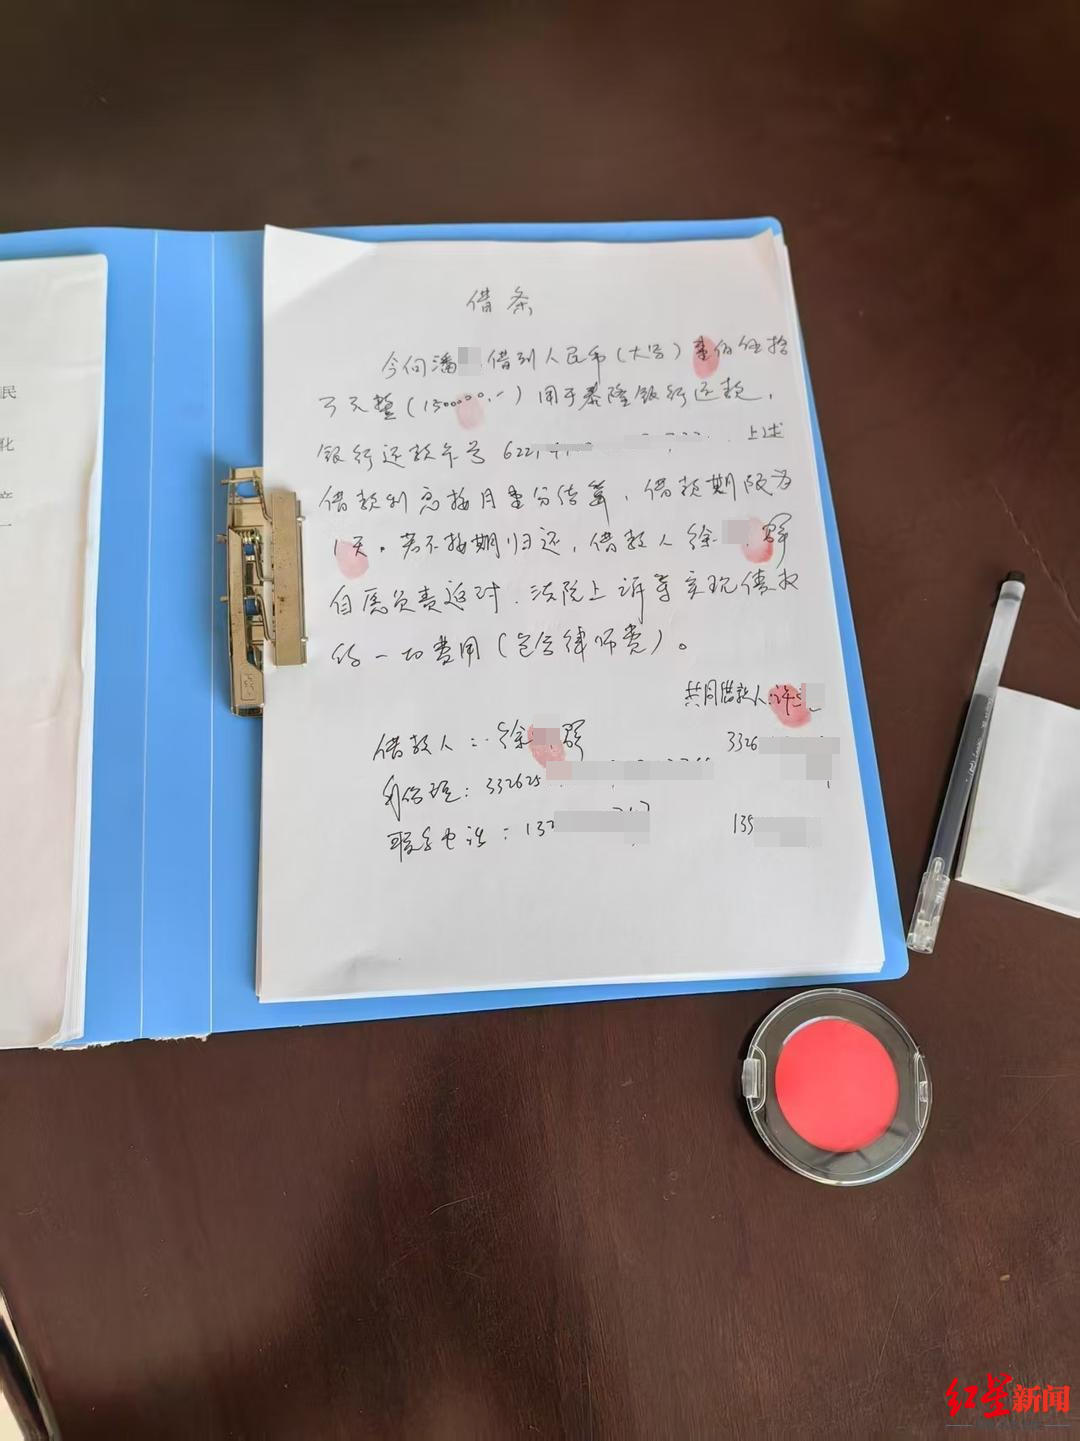 民
化
产
一
借条
今向潘 借到人民币(大写)壹佰伍拾
万元整(1500000.-)用于泰隆银行还款,
银行还款卡号 622 上述
借款利息按月壹分结算,借款期限为
1天。若不按期归还,借款人徐 群
自愿负责返对、法院上诉等实现债权
的一切费用(包含律师费)。
共同借款人:许
借款人:徐 群
3326
身份证:332625
联系电话:137
135
红星新闻